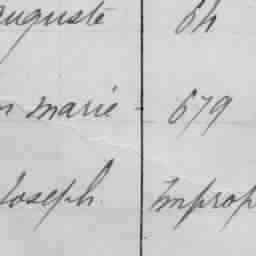 auguste 6h
n marie - 679
Joseph Improp